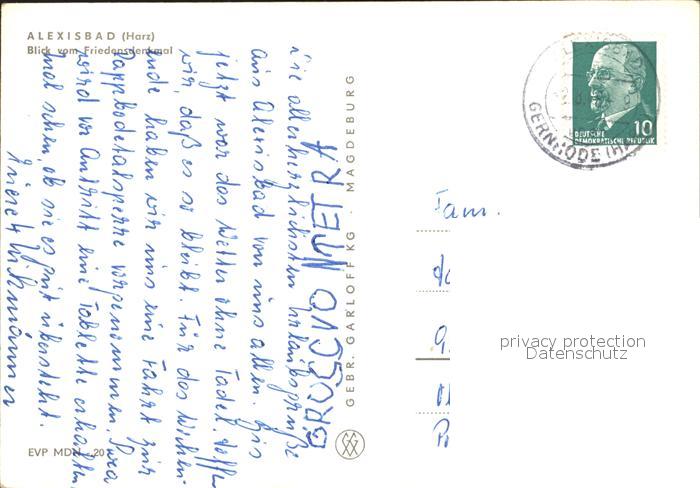 ALEXISBAD (Harz)
Blick vom Friedensdenkmal
Die allerherzlichsten Urlaubsgrüße
aus Alexisbad von uns allen. Bis
jetzt war das Wetter ohne Tadel. Hoffen
wir, daß es so bleibt. Für das Wochen-
ende haben wir uns eine Fahrt zur
Rappbodetalsperre vorgenommen.
wird vor Antritt eine Tablette erhalten.
Mal sehen, ob sie es gut übersteht.
GRUSS VON PETRA
GEBR. GARLOFF KG · MAGDEBURG
EVP MDN -,20
10
DEUTSCHE
DEMOKRATISCHE REPUBLIK
GERNRODE (HARZ)
Fam.
privacy protection
Datenschutz